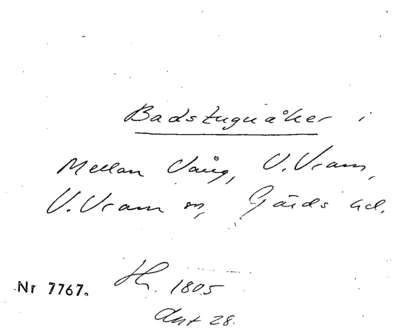 Badstuguåker i
Mellan Vång, V. Vram,
V. Vram sn, Gärds hd.
Nr 7767. 1805
Akt 28.